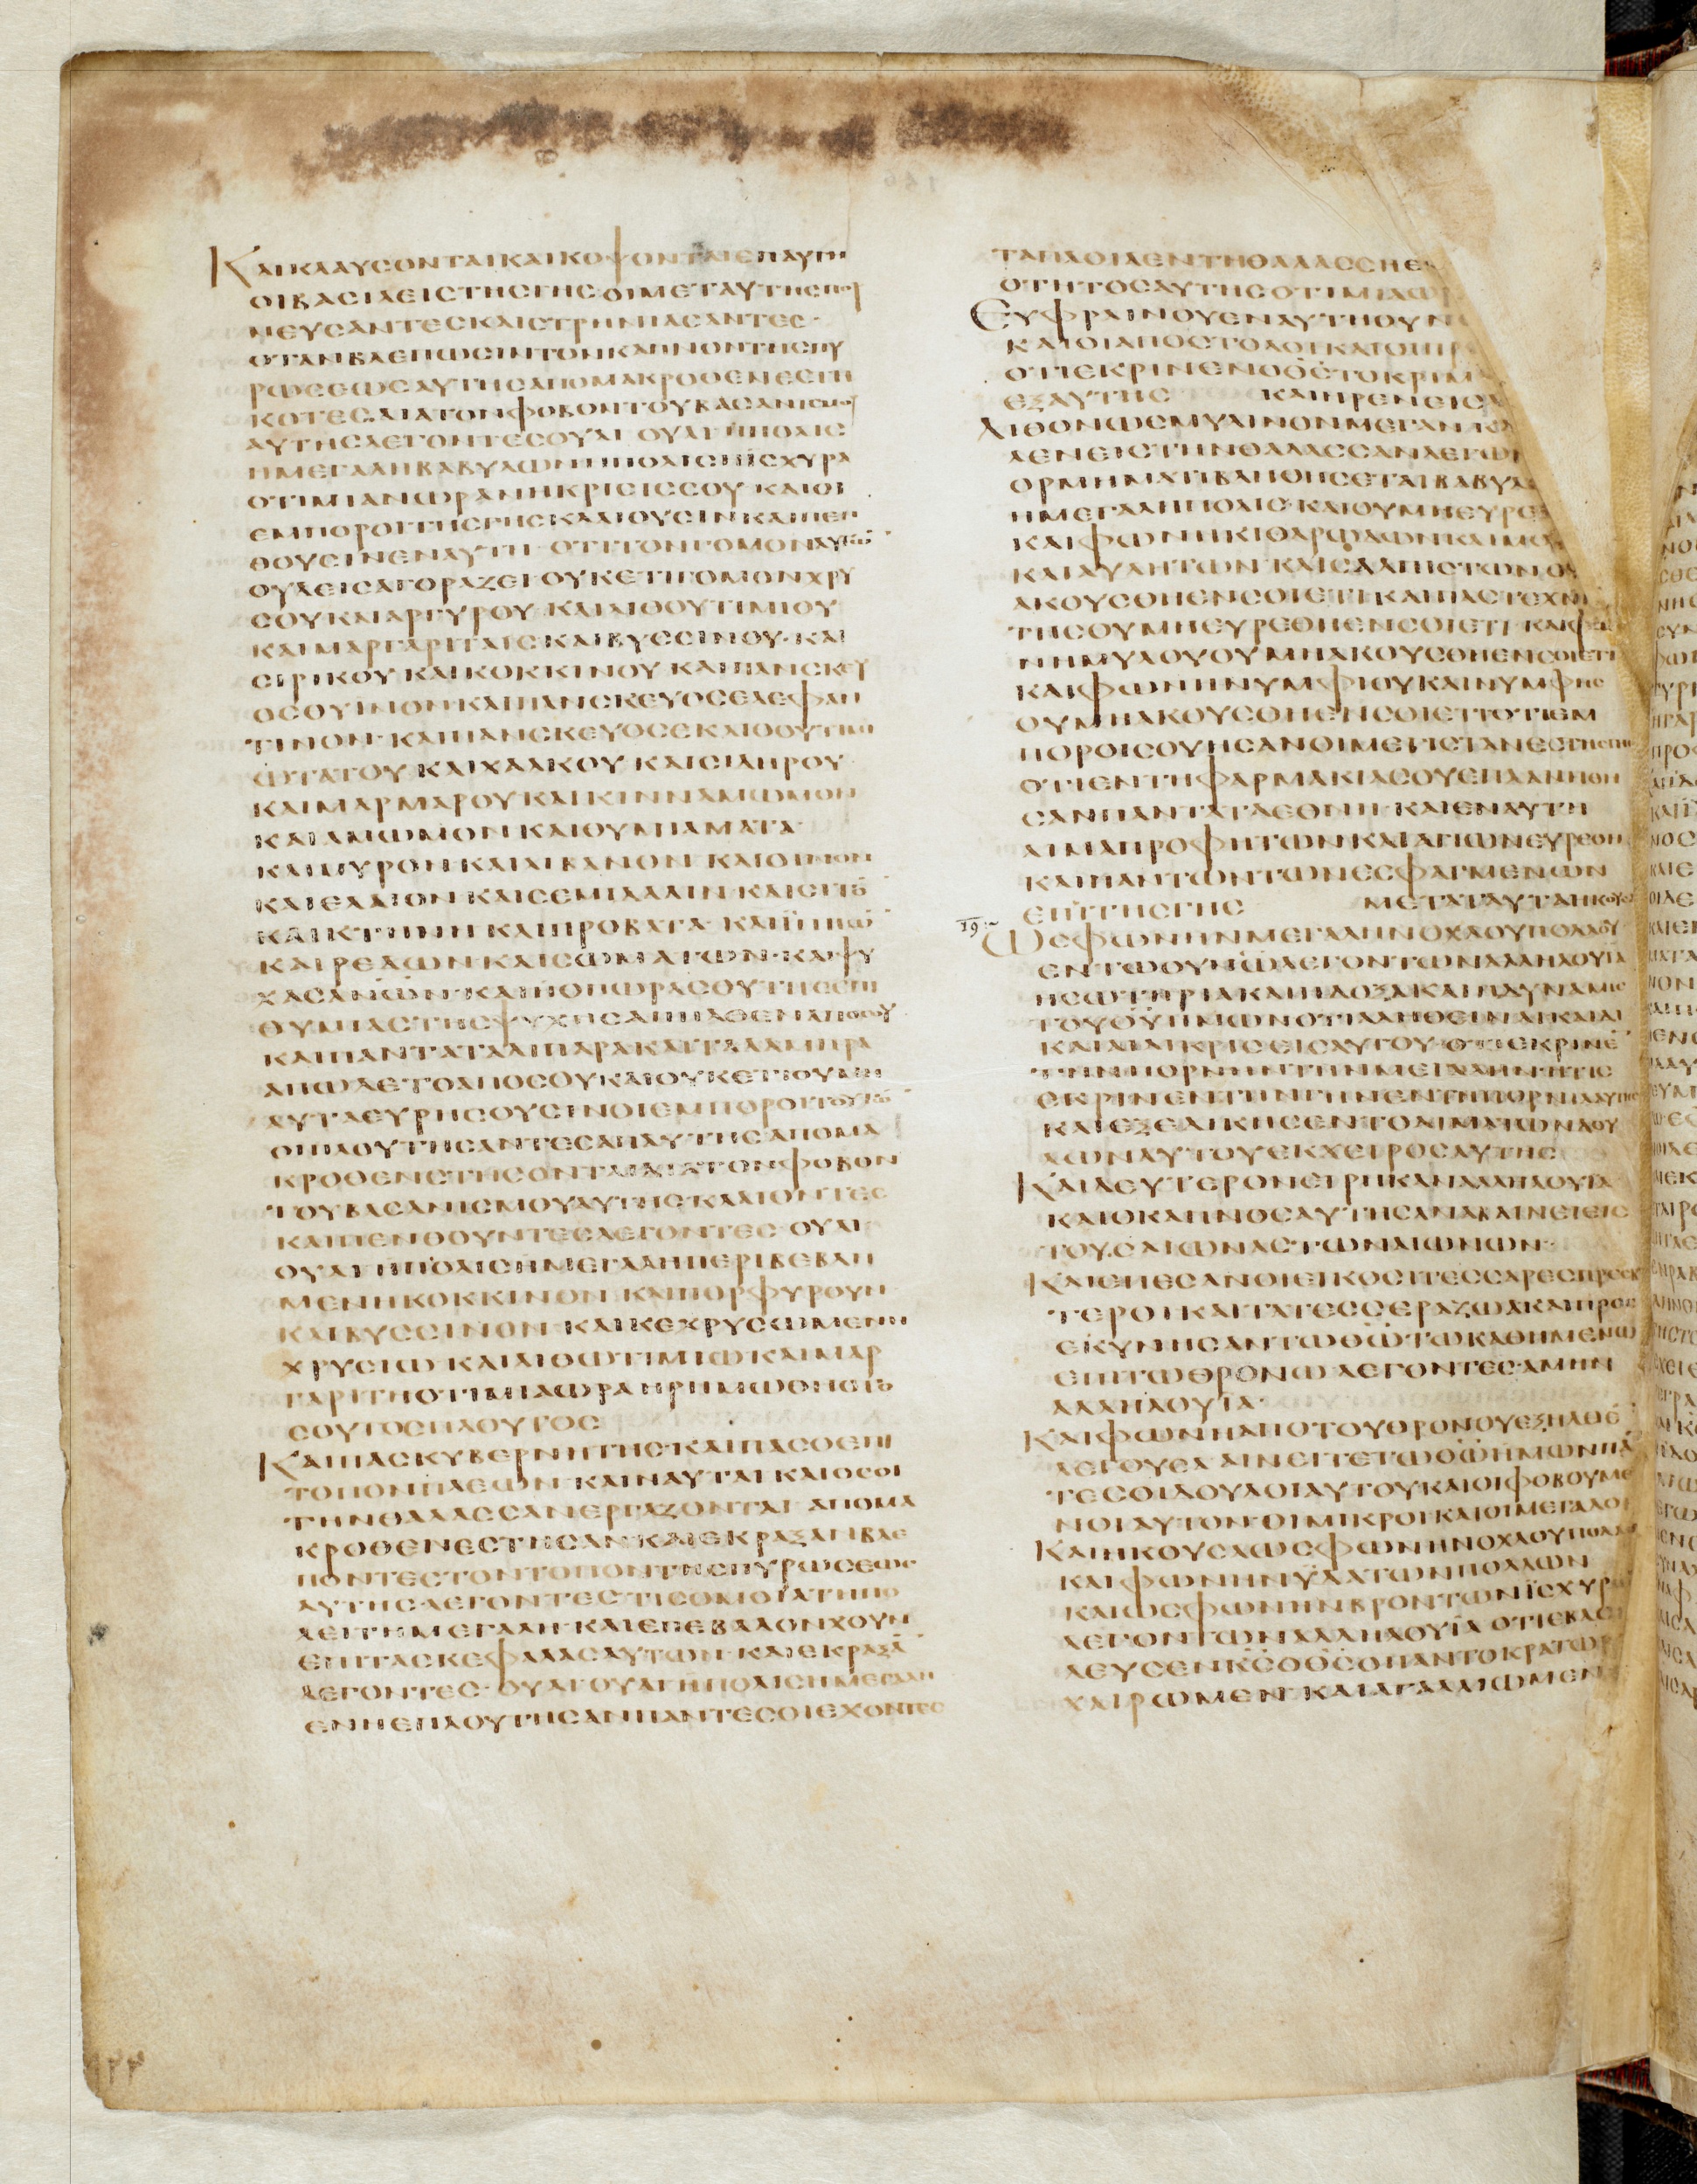 ΚΑΙΚΛΑΥΣΟΝΤΑΙΚΑΙΚΟΨΟΝΤΑΙΕΠΑΥΤΗ
ΟΙΒΑΣΙΛΕΙΣΤΗΣΓΗΣΟΙΜΕΤΑΥΤΗΣΠΟΡ
ΝΕΥΣΑΝΤΕΣΚΑΙΣΤΡΗΝΙΑΣΑΝΤΕΣ·
ΟΤΑΝΒΛΕΠΩΣΙΝΤΟΝΚΑΠΝΟΝΤΗΣΠΥ
ΡΩΣΕΩΣΑΥΤΗΣΑΠΟΜΑΚΡΟΘΕΝΕΣΤΗ
ΚΟΤΕΣΔΙΑΤΟΝΦΟΒΟΝΤΟΥΒΑΣΑΝΙΣΜΟΥ
ΑΥΤΗΣΛΕΓΟΝΤΕΣΟΥΑΙ ΟΥΑΙ ΗΠΟΛΙΣ
ΗΜΕΓΑΛΗΒΑΒΥΛΩΝΗΠΟΛΙΣΗΙΣΧΥΡΑ
ΟΤΙΜΙΑΝΩΡΑΝΗΚΡΙΣΙΣΣΟΥ·ΚΑΙΟΙ
ΕΜΠΟΡΟΙΤΗΣΓΗΣΚΛΑΙΟΥΣΙΝΚΑΙΠΕΝ
ΘΟΥΣΙΝΕΝΑΥΤΗ·ΟΤΙΤΟΝΓΟΜΟΝΑΥΤΩ̅
ΟΥΔΕΙΣΑΓΟΡΑΖΕΙΟΥΚΕΤΙΓΟΜΟΝΧΡΥ
ΣΟΥΚΑΙΑΡΓΥΡΟΥ·ΚΑΙΛΙΘΟΥΤΙΜΙΟΥ
ΚΑΙΜΑΡΓΑΡΙΤΑΙΣΚΑΙΒΥΣΣΙΝΟΥ·ΚΑΙ
ΣΙΡΙΚΟΥΚΑΙΚΟΚΚΙΝΟΥ·ΚΑΙΠΑΝΣΚΕΥ
ΟΣΟΥΙΝΟΝ·ΚΑΙΠΑΝΣΚΕΥΟΣΕΛΕΦΑΝ
ΤΙΝΟΝ·ΚΑΙΠΑΝΣΚΕΥΟΣΕΚΛΙΘΟΥΤΙΜΙ
ΩΤΑΤΟΥ·ΚΑΙΧΑΛΚΟΥ·ΚΑΙΣΙΔΗΡΟΥ·
ΚΑΙΜΑΡΜΑΡΟΥΚΑΙΚΙΝΝΑΜΩΜΟΝ
ΚΑΙΑΜΩΜΟΝΚΑΙΘΥΜΙΑΜΑΤΑ·
ΚΑΙΜΥΡΟΝΚΑΙΛΙΒΑΝΟΝ·ΚΑΙΟΙΝΟΝ
ΚΑΙΕΛΑΙΟΝ·ΚΑΙΣΕΜΙΔΑΛΙΝ·ΚΑΙΣΙΤΟ̅
ΚΑΙΚΤΗΝΗΚΑΙΠΡΟΒΑΤΑ·ΚΑΙΪΠΠΩ̅
ΚΑΙΡΕΔΩΝ·ΚΑΙΣΩΜΑΤΩΝ·ΚΑΙΨΥ
ΧΑΣΑΝΩ̅Ν·ΚΑΙΗΟΠΩΡΑΣΟΥΤΗΣΕΠΙ
ΘΥΜΙΑΣΤΗΣΨΥΧΗΣΑΠΗΛΘΕΝΑΠΟΣΟΥ
ΚΑΙΠΑΝΤΑΤΑΛΙΠΑΡΑΚΑΙΤΑΛΑΜΠΡΑ
ΑΠΩΛΕΤΟΑΠΟΣΟΥΚΑΙΟΥΚΕΤΙΟΥΜΗ
ΑΥΤΑΕΥΡΗΣΟΥΣΙΝΟΙΕΜΠΟΡΟΙΤΟΥΤΩ̅
ΟΙΠΛΟΥΤΗΣΑΝΤΕΣΑΠΑΥΤΗΣΑΠΟΜΑ
ΚΡΟΘΕΝΣΤΗΣΟΝΤΑΙΔΙΑΤΟΝΦΟΒΟΝ
ΤΟΥΒΑΣΑΝΙΣΜΟΥΑΥΤΗΣ·ΚΛΑΙΟΝΤΕΣ
ΚΑΙΠΕΝΘΟΥΝΤΕΣΛΕΓΟΝΤΕΣ·ΟΥΑΙ
ΟΥΑΙΗΠΟΛΙΣΗΜΕΓΑΛΗΠΕΡΙΒΕΒΛΗ
ΜΕΝΗΚΟΚΚΙΝΟΝ·ΚΑΙΠΟΡΦΥΡΟΥΝ
ΚΑΙΒΥΣΣΙΝΟΝ·ΚΑΙΚΕΧΡΥΣΩΜΕΝΗ
ΧΡΥΣΙΩ ΚΑΙΛΙΘΩΤΙΜΙΩΚΑΙΜΑΡ
ΓΑΡΙΤΗΟΤΙΜΙΑΩΡΑΗΡΗΜΩΘΗΟΤΟ
ΣΟΥΤΟΣΠΛΟΥΤΟΣ
ΚΑΙΠΑΣΚΥΒΕΡΝΗΤΗΣ·ΚΑΙΠΑΣΟΕΠΙ
ΤΟΠΟΝΠΛΕΩΝ·ΚΑΙΝΑΥΤΑΙ ΚΑΙΟΣΟΙ
ΤΗΝΘΑΛΑΣΣΑΝΕΡΓΑΖΟΝΤΑΙ ΑΠΟΜΑ
ΚΡΟΘΕΝΕΣΤΗΣΑΝ·ΚΑΙΕΚΡΑΞΑΝΒΛΕ
ΠΟΝΤΕΣΤΟΝΤΟΠΟΝΤΗΣΠΥΡΩΣΕΩΣ
ΑΥΤΗΣ·ΛΕΓΟΝΤΕΣ·ΤΙΣΟΜΟΙΑΤΗΠΟ
ΛΕΙΤΗΜΕΓΑΛΗ·ΚΑΙΕΠΕΒΑΛΟΝΧΟΥΝ
ΕΠΙΤΑΣΚΕΦΑΛΑΣΑΥΤΩΝ·ΚΑΙΕΚΡΑΞΑ̅
ΛΕΓΟΝΤΕΣ·ΟΥΑΙΟΥΑΙΗΠΟΛΙΣΗΜΕΓΑΛΗ
ΕΝΗΕΠΛΟΥΤΗΣΑΝΠΑΝΤΕΣΟΙΕΧΟΝΤΕΣ
ΤΑΠΛΟΙΑΕΝΤΗΘΑΛΑΣΣΗΕ
ΟΤΗΤΟΣΑΥΤΗΣΟΤΙΜΙΑΩΡ
ΕΥΦΡΑΙΝΟΥΕΝΑΥΤΗΟΥΝ
ΚΑΙΟΙΑΠΟΣΤΟΛΟΙΚΑΙΟΙΠΡ
ΟΤΙΕΚΡΙΝΕΝΟΘ̅Σ̅ΤΟΚΡΙΜ
ΕΞΑΥΤΗΣ ΚΑΙΗΡΕΝΕΙΣΑ
ΛΙΘΟΝΩΣΜΥΛΙΝΟΝΜΕΓΑΝ·ΚΑ
ΛΕΝΕΙΣΤΗΝΘΑΛΑΣΣΑΝΛΕΓΩΝ
ΟΡΜΗΜΑΤΙΒΛΗΘΗΣΕΤΑΙΒΑΒΥΛ
ΗΜΕΓΑΛΗΠΟΛΙΣ·ΚΑΙΟΥΜΗΕΥΡΕ
ΚΑΙΦΩΝΗΚΙΘΑΡΩΔΩΝΚΑΙΜΟΥ
ΚΑΙΑΥΛΗΤΩΝ·ΚΑΙΣΑΛΠΙΣΤΩΝΟΥ
ΑΚΟΥΣΘΗΕΝΣΟΙΕΤΙ·ΚΑΙΠΑΣΤΕΧΝΙ
ΤΗΣΟΥΜΗΕΥΡΕΘΗΕΝΣΟΙΕΤΙ·ΚΑΙΦΩ
ΝΗΜΥΛΟΥΟΥΜΗΑΚΟΥΣΘΗΕΝΣΟΙΕΤΙ
ΚΑΙΦΩΝΗΝΥΜΦΙΟΥΚΑΙΝΥΜΦΗΣ
ΟΥΜΗΑΚΟΥΣΘΗΕΝΣΟΙΕΤΙΟΤΙΕΜ
ΠΟΡΟΙΣΟΥΗΣΑΝΟΙΜΕΓΙΣΤΑΝΕΣΤΗΣΓΗΣ
ΟΤΙΕΝΤΗΦΑΡΜΑΚΙΑΣΟΥΕΠΛΑΝΗΘΗ
ΣΑΝΠΑΝΤΑΤΑΕΘΝΗ·ΚΑΙΕΝΑΥΤΗ
ΑΙΜΑΠΡΟΦΗΤΩΝΚΑΙΑΓΙΩΝΕΥΡΕΘΗ
ΚΑΙΠΑΝΤΩΝΤΩΝΕΣΦΑΓΜΕΝΩΝ
ΕΠΙΤΗΣΓΗΣ ΜΕΤΑΤΑΥΤΑΗΚΟΥΣΑ
19
ΩΣΦΩΝΗΝΜΕΓΑΛΗΝΟΧΛΟΥΠΟΛΛΟΥ
ΕΝΤΩΟΥΝΩ̅ΛΕΓΟΝΤΩΝΑΛΛΗΛΟΥΪΑ
ΗΣΩΤΗΡΙΑΚΑΙΗΔΟΞΑΚΑΙΗΔΥΝΑΜΙΣ
ΤΟΥΘ̅Υ̅ΗΜΩΝΟΤΙΑΛΗΘΕΙΝΑΙΚΑΙΔΙ
ΚΑΙΑΙΑΙΚΡΙΣΕΙΣΑΥΤΟΥ·ΟΤΙΕΚΡΙΝΕ̅
ΤΗΝΠΟΡΝΗΝΤΗΝΜΕΓΑΛΗΝΗΤΙΣ
ΕΚΡΙΝΕΝΤΗΝΓΗΝΕΝΤΗΠΟΡΝΙΑΑΥΤΗΣ
ΚΑΙΕΞΕΔΙΚΗΣΕΝΤΟΑΙΜΑΤΩΝΔΟΥ
ΛΩΝΑΥΤΟΥΕΚΧΕΙΡΟΣΑΥΤΗΣ
ΚΑΙΔΕΥΤΕΡΟΝΕΙΡΗΚΑΝΑΛΛΗΛΟΥΪΑ
ΚΑΙΟΚΑΠΝΟΣΑΥΤΗΣΑΝΑΒΑΙΝΕΙΕΙΣ
ΤΟΥΣΑΙΩΝΑΣΤΩΝΑΙΩΝΩΝ·
ΚΑΙΕΠΕΣΑΝΟΙΕΙΚΟΣΙΤΕΣΣΑΡΕΣΠΡΕΣΒΥ
ΤΕΡΟΙΚΑΙΤΑΤΕΣΣΕΡΑΖΩΑΚΑΙΠΡΟΣ
ΕΚΥΝΗΣΑΝΤΩΘ̅Ω̅ΤΩΚΑΘΗΜΕΝΩ
ΕΠΙΤΩΘΡΟΝΩΛΕΓΟΝΤΕΣ·ΑΜΗΝ
ΑΛΛΗΛΟΥΪΑ·
ΚΑΙΦΩΝΗΑΠΟΤΟΥΘΡΟΝΟΥΕΞΗΛΘΕ̅
ΛΕΓΟΥΣΑ ΑΙΝΕΙΤΕΤΩΘ̅Ω̅ΗΜΩΝΠΑ̅
ΤΕΣΟΙΔΟΥΛΟΙΑΥΤΟΥΚΑΙΟΙΦΟΒΟΥΜΕ
ΝΟΙΑΥΤΟΝ·ΟΙΜΙΚΡΟΙΚΑΙΟΙΜΕΓΑΛΟΙ
ΚΑΙΗΚΟΥΣΑΩΣΦΩΝΗΝΟΧΛΟΥΠΟΛΛΟΥ
ΚΑΙΦΩΝΗΝΫΔΑΤΩΝΠΟΛΛΩΝ
ΚΑΙΩΣΦΩΝΗΝΒΡΟΝΤΩΝΪΣΧΥΡΩ
ΛΕΓΟΝΤΩΝΑΛΛΗΛΟΥΪΑ ΟΤΙΕΒΑΣΙ
ΛΕΥΣΕΝΚ̅Σ̅ΟΘ̅Σ̅ΟΠΑΝΤΟΚΡΑΤΩΡ
ΧΑΙΡΩΜΕΝ·ΚΑΙΑΓΑΛΛΙΩΜΕΝ